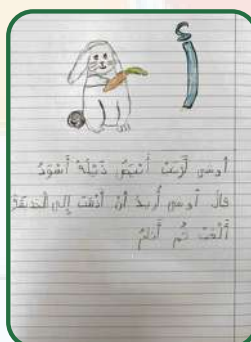 أ
أوسي أرنب أبيض ذيله أسود
قال أوسي أريد أن أذهب إلى الحديقة
ألعب ثم أنام